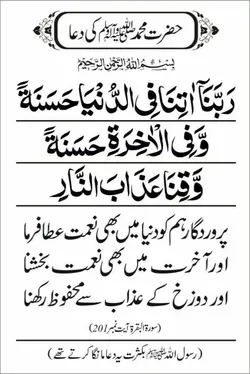 حضرت محمد ﷺ کی دعا
بِسْمِ اللهِ الرَّحْمٰنِ الرَّحِيْمِ
رَبَّنَاۤ اٰتِنَا فِی الدُّنْیَا حَسَنَةً
وَّ فِی الْاٰخِرَةِ حَسَنَةً
وَّ قِنَا عَذَابَ النَّارِ
پروردگار ہم کو دنیا میں بھی نعمت عطا فرما
اور آخرت میں بھی نعمت بخشنا
اور دوزخ کے عذاب سے محفوظ رکھنا
(سورۃ البقرۃ آیت نمبر 201)
(رسول اللہ ﷺ بکثرت یہ دعا مانگا کرتے تھے)